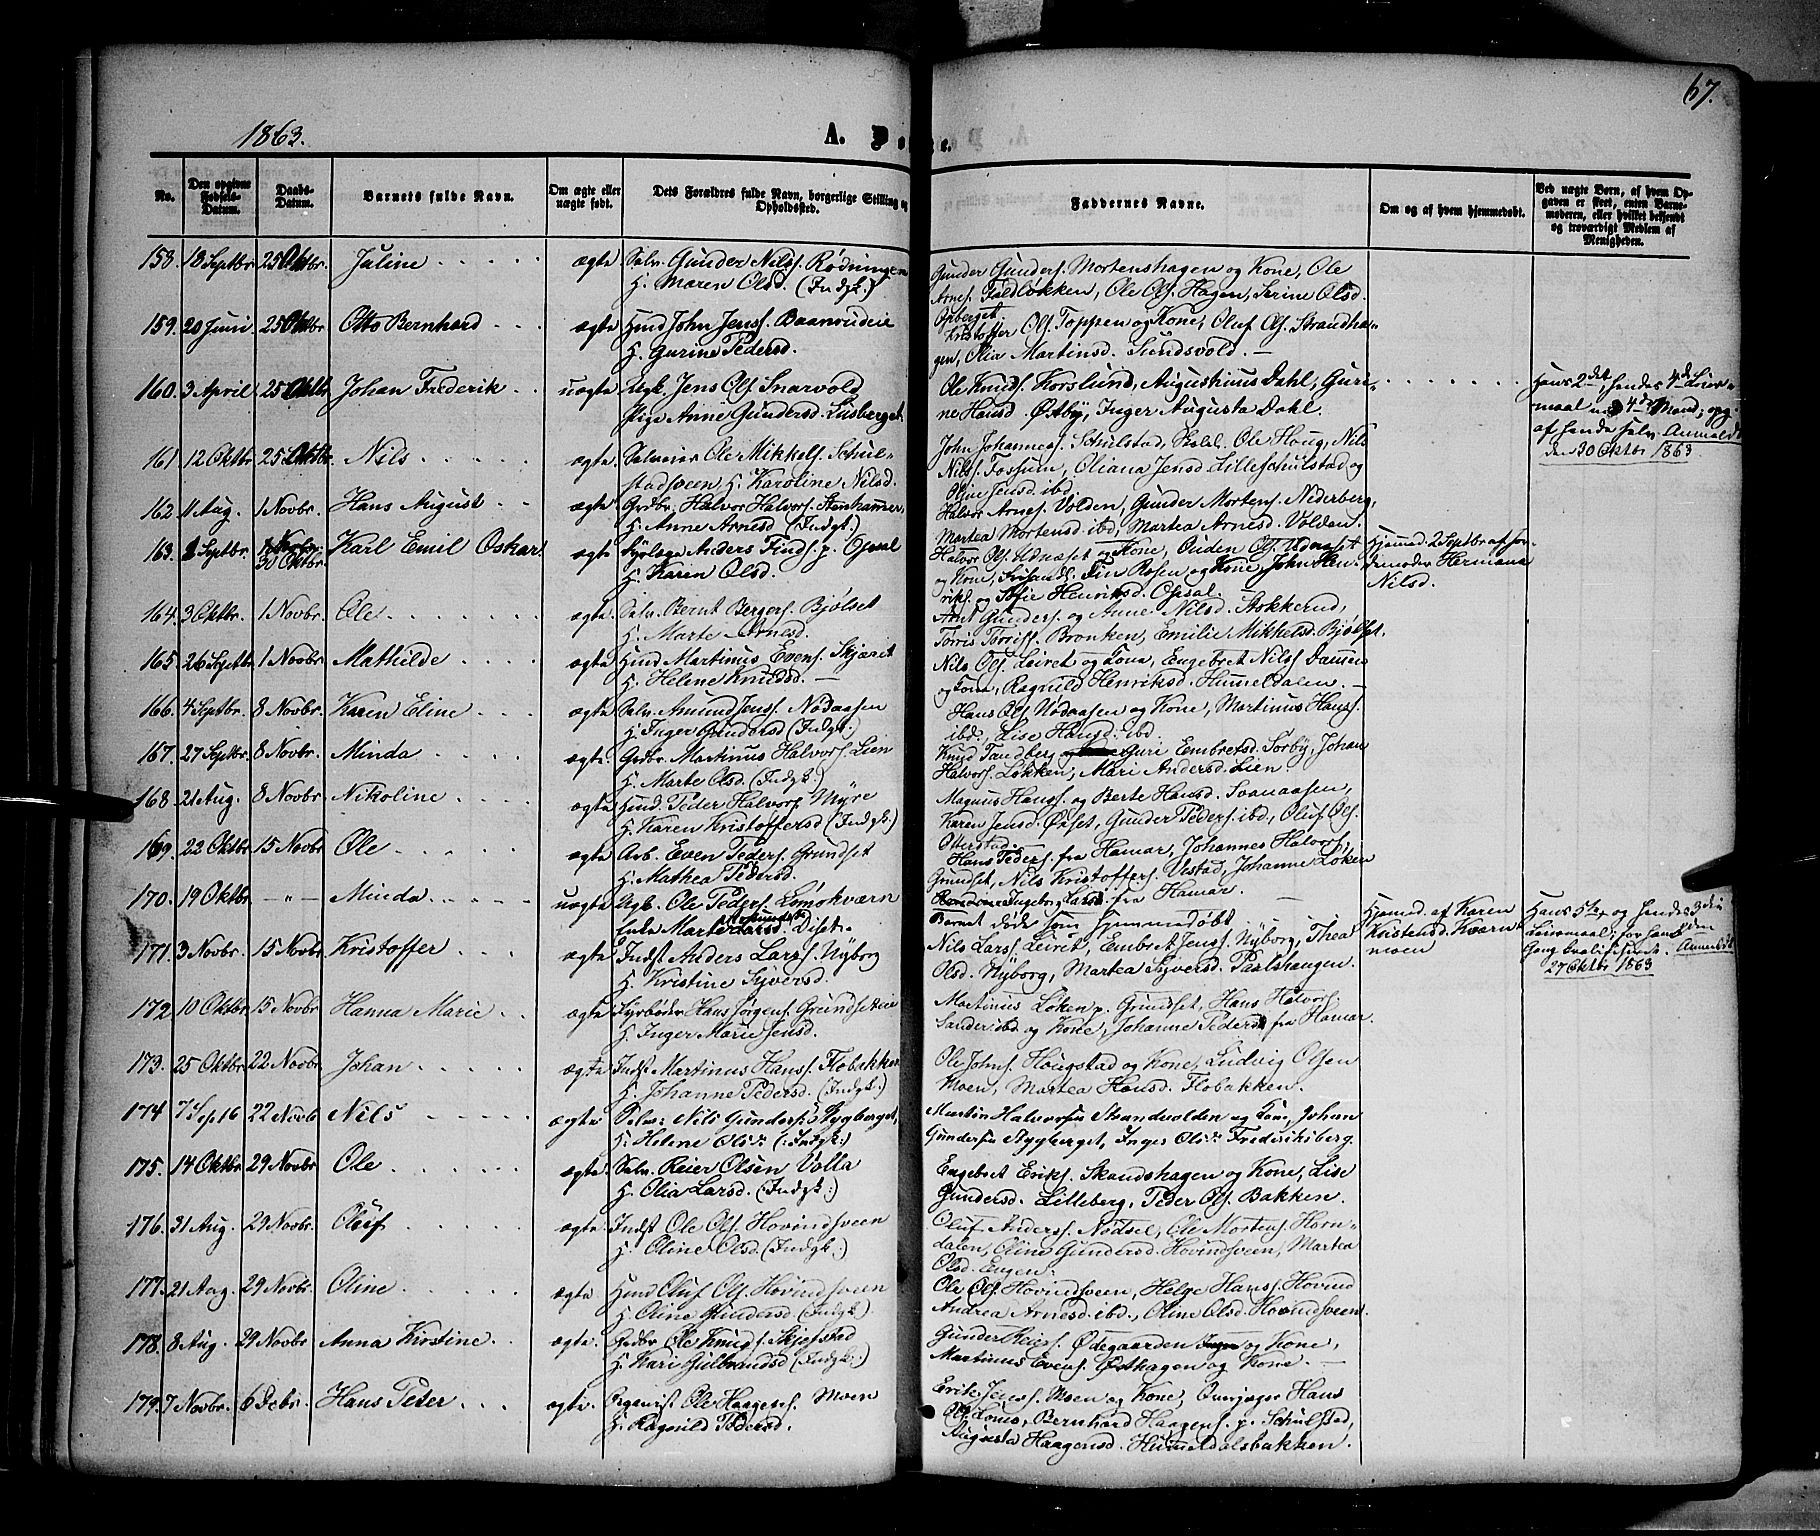 67.
1863.
A. D
No.
Den opgivne Fødsels-Datum.
Daabs-Datum.
Barnets fulde Navn.
Om ægte eller uægte født.
Dets Forældres fulde Navn, borgerlige Stilling og Opholdssted.
Faddernes Navne.
Om og af hvem hjemmedøbt.
Ved uægte Børn, af hvem Opgaven er skeet, enten Barnemoderen, eller hvilket bekjendt og troværdigt Medlem af Menigheden.
158. 18 Septbr. 25 Oktbr. Juline ægte Selv. Gunder Nilss. Rødningen
H. Maren Olsd. (Indgk.)
Gunder Gunders. Mortenshagen og Kone, Ole
Arnes. Foldløkken, Ole Ols. Hagen, Serine Olsd.
Opberget
159. 20 Juni 25 Oktbr. Otto Bernhard ægte Husmd John Jenss. Baanrudeie
H. Gurine Pedersd.
Kristoffer Ols. Toppen og Kone, Oluf Ols. Strandha-
gen, Olia Martinsd. Sundsvold. —
160. 3 April 25 Oktbr Johan Frederik uægte Ugk. Jens Ols. Snarvold
Pige Anne Gundersd. Lusberget
Ole Knuds. Korslund, Augustinus Dahl, Guri-
ne Hansd. Østby, Inger Augusta Dahl.
Hans 2det hendes 4de Leier-
maal med 4de Mand; opg.
af hende selv. Anmeldt
den 30 Oktbr 1863.
161. 12 Oktbr 25 Oktbr. Nils ægte Selveier Ole Mikkels. Schul-
stadsveen, H. Karoline Nilsd.
John Johanness. Schulstad, Ole Houg, Nils
Nils. Fossum, Oliana Jensd. Lilleschulstad og
Olive Jensd. ibd.
162 11 Aug. 1 Novbr. Hans August ægte Grdbr. Halvor Halvors. Stenhammer,
H. Anne Arnesd (Indgk.)
Halvor Arnes. Volden, Gunder Mortens. Nederberg,
Martea Mortensd. ibd, Martea Arnesd. Volden.
163. 2 Septbr. 30 Oktbr. Karl Emil Oskar ægte Anders Finds. p. Opsal
H. Karen Olsd.
Halvor Ols. Udnæset og Kone, Ouden Ols. Udnæset
og Kone, Fin Rosen og Kone, John Hen-
riks. og Sofie Henriksd. Opsal. —
Hjemmed. 2 Septbr. af Jor-
demoder Hermana
Nilsd.
164. 3 Oktbr. 1 Novbr. Ole ægte Selv. Bernt Bergers. Bjølset
H. Marte Arnesd.
Arnt Gunders. og Anne Nilsd. Stokkerud,
Tørris Tørriss. Bronken, Emilie Mikkelsd. Bjølset.
165. 26 Septbr. 1 Novbr. Mathilde ægte Husmd Martinus Evens. Skjæret
H. Helene Knudsd. —
Nils Ols. Leiret og Kone, Engebret Nilss. Dammen
og Kone, Ragnild Henriksd. Hummeldalen. —
166. 4 Septbr. 8 Novbr. Karen Eline ægte Selv. Amund Jenss. Nødaasen
H. Inger Gundersd (Indgk.)
Hans Ols. Nødaasen og Kone, Martinus Hanss.
ibd., Lise Hansd. ibd.
167. 27 Septbr. 8 Novbr. Minda ægte Grdbr. Martinus Halvors. Lien
H. Marte Olsd. (Indgk.)
Knud Tandberg Guri Embretsd. Sørby, Johan
Halvors. Løkken, Mari Andersd. Lien.
168. 21 Aug. 8 Novbr. Nikoline ægte Husmd. Peder Halvors. Myre
H. Karen Kristoffersd (Indgk.)
Magnus Hanss. og Berte Hansd. Svenaasen,
Karen Jensd. Øxset, Gunder Peders. ibd, Oluf Ols.
Otterstad.
169. 22 Oktbr. 15 Novbr Ole ægte Arb. Even Peders. Grundset
H. Mathea Pedersd.
Hans Peders. fra Hamar, Johannes Halvors.
Grundset, Nils Kristoffers. Vestad, Johanne Løken
Ingeborg Larsd. fra Hamar. —
170. 19 Oktbr. —„— Minda uægte Ugk. Ole Peders. Lømokværn
Enke Marte Larsd. Diset.
Barnet døde som hjemmedøbt
Hjemmed. af Karen
Kristensd. Kværn-
moen
Hans 5te og hendes 3die
Leiermaal; for hende
Gang kvalificeret. Anmeldt den
27 Oktbr 1863
171. 3 Novbr. 15 Novbr. Kristoffer ægte Indst Anders Larss. Nyborg
H. Kristine Syversd.
Nils Larss. Leiret, Embret Jenss. Nyborg, Thea
Olsd. Nyborg, Martea Syversd. Paalshaugen.
172 10 Oktbr. 15 Novbr. Hanna Marie ægte Fyrbøder Hans Jørgens. Grundseteie
H. Inger Marie Jensd.
Martinus Løken p. Grundset, Hans Halvors.
Sander ibd. og Kone, Johanne Pedersd. fra Hamar.
173. 25 Oktbr. 22 Novbr. Johan ægte Indst Martinus Hanss. Flobakken
H. Johanne Pedersd. (Indgk.)
Ole Johns. Hougstad og Kone, Ludvig Olsen
Moen, Martea Hansd. Flobakken.
174. 7 Sep 22 Novb Nils ægte Selv: Nils Gunders: Stygberget,
H: Helene Ols:r (:Indgk:)
Martin Halvorsen Strandvolden og Kone, Johan
Gundersen Stygberget, Inger Ols:r Frederiksberg.
175. 14 Oktbr. 29 Novbr. Ole ægte Selv. Reier Olsen Volla
H. Olia Larsd. (Indgk.)
Engebret Eriks. Skandshagen og Kone, Lise
Gundersd. Lilleberg, Peder Ols. Bakken.
176. 31 Aug. 29 Novbr. Oluf ægte Indst Ole Ols. Hovindsveen
H. Oline Olsd. (Indgk.)
Oluf Anders. Nødsel, Ole Mortens. Horn-
dalen, Oline Gundersd. Hovindsveen, Martea
Olsd. Engen.
177. 21 Aug. 29 Novbr. Oline ægte Husmd Oluf Ols. Hovindsveen
H. Oline Gundersd. (Indgk.)
Ole Ols. Hovindsveen, Helge Hanss. Hovind
Andrea Arnesd. ibd., Oline Olsd. Hovindsveen.
178. 8 Aug. 29 Novbr Anna Kirstine ægte Grdbr Ole Knuds. Skjefstad
H. Kari Gulbrandsd (Indgk.)
Gunder Reiers. Ødegaarden og Kone,
Martinus Evens. Østhagen og Kone. —
179. 7 Novbr. 6 Debr. Hans Peder ægte Organist Ole Haagenss. Moen
H. Ragnild Pedersd.
Erik Jenss. Moen og Kone, Hans
Ols. Bernhard Haagens. p. Schulstad,
Augusta Haagensd. Hummeldalsbakken.